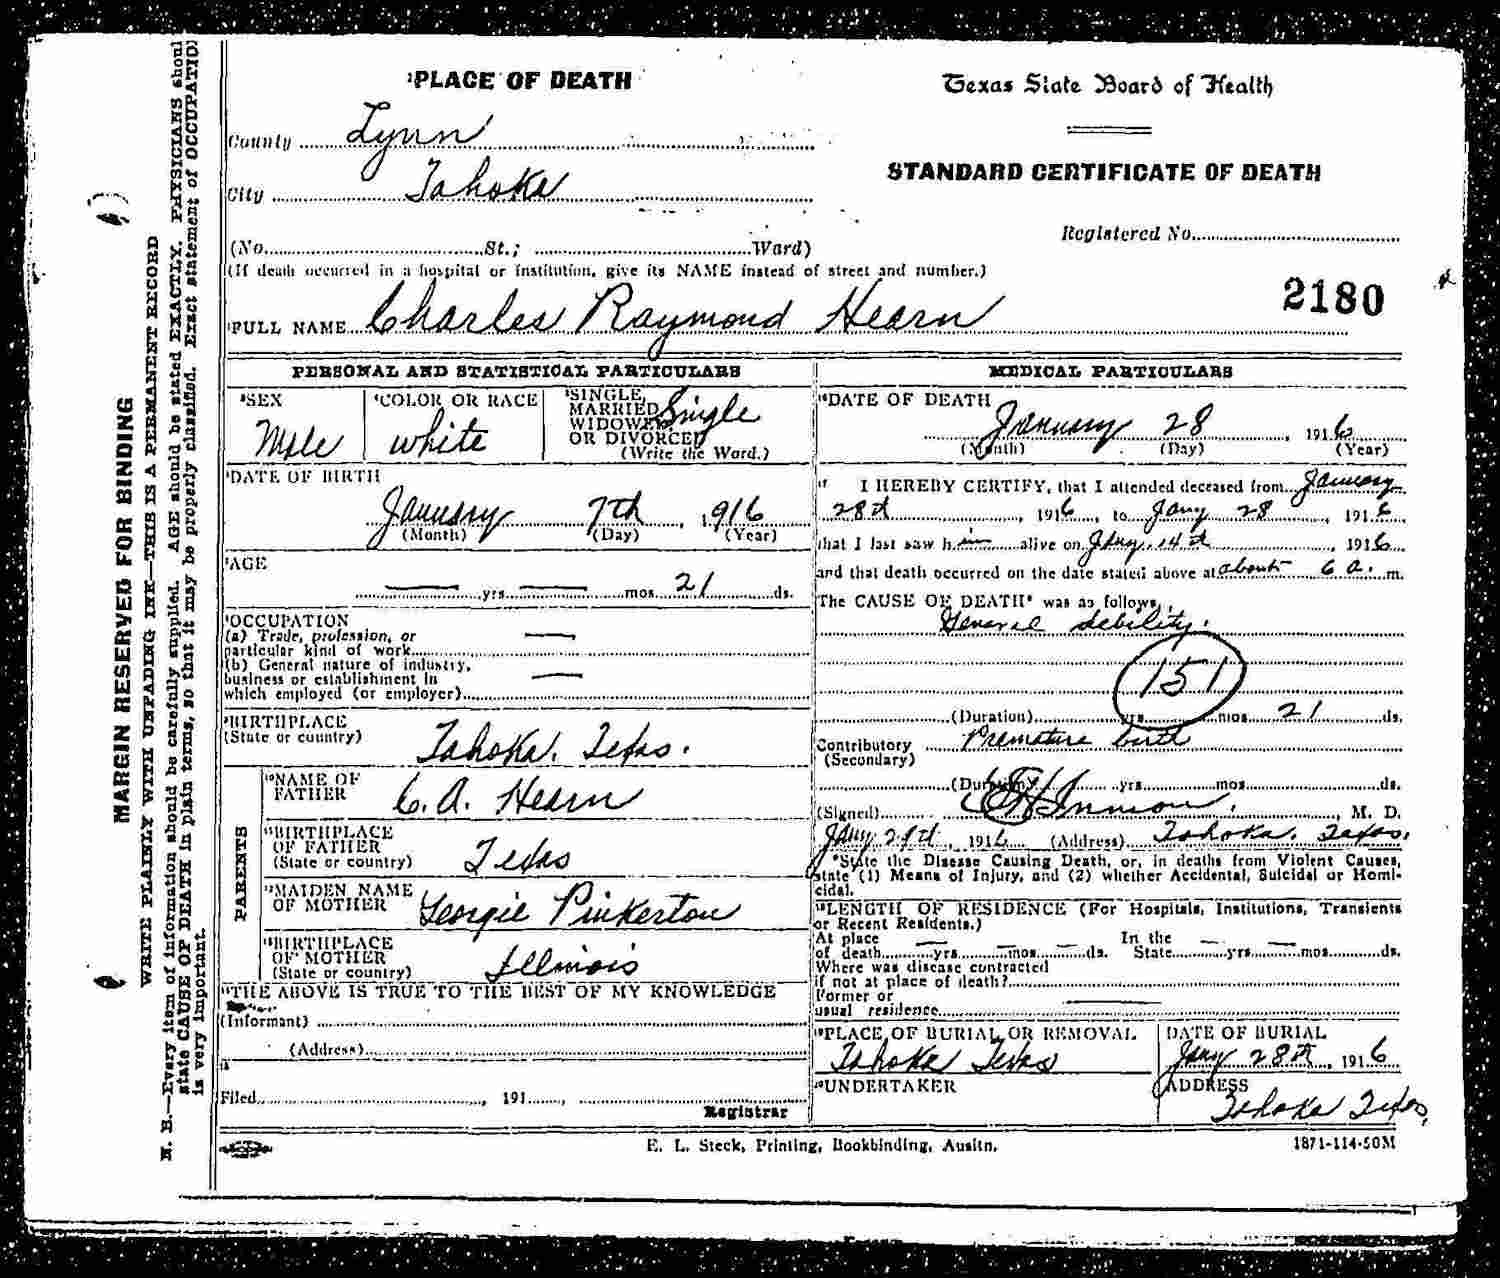 MARGIN RESERVED FOR BINDING
WRITE PLAINLY WITH UNFADING INK—THIS IS A PERMANENT RECORD
N. B.—Every item of information should be carefully supplied. AGE should be stated EXACTLY. PHYSICIANS should
state CAUSE OF DEATH in plain terms, so that it may be properly classified. Exact statement of OCCUPATION
is very important.
¹PLACE OF DEATH
County Lynn
City Tahoka
(No. St.; Ward)
(If death occurred in a hospital or institution, give its NAME instead of street and number.)
Texas State Board of Health
STANDARD CERTIFICATE OF DEATH
Registered No.
2180
²FULL NAME Charles Raymond Hearn
PERSONAL AND STATISTICAL PARTICULARS
³SEX
Male
⁴COLOR OR RACE
white
⁵SINGLE,
MARRIED,
WIDOWED,
OR DIVORCED
Single
(Write the Word.)
⁶DATE OF BIRTH
January 7th, 1916
(Month) (Day) (Year)
⁷AGE
— yrs. — mos. 21 ds.
⁸OCCUPATION
(a) Trade, profession, or
particular kind of work —
(b) General nature of industry,
business or establishment in —
which employed (or employer)
⁹BIRTHPLACE
(State or country) Tahoka. Texas.
PARENTS
¹⁰NAME OF
FATHER C. A. Hearn
¹¹BIRTHPLACE
OF FATHER
(State or country) Texas
¹²MAIDEN NAME
OF MOTHER Georgie Pinkerton
¹³BIRTHPLACE
OF MOTHER
(State or country) Illinois
¹⁴THE ABOVE IS TRUE TO THE BEST OF MY KNOWLEDGE
(Informant)
(Address)
15
Filed , 191 ,
Registrar
MEDICAL PARTICULARS
¹⁶DATE OF DEATH
January 28, 1916
(Month) (Day) (Year)
17 I HEREBY CERTIFY, that I attended deceased from January
28th, 1916, to Jany 28, 1916
that I last saw him alive on Jany. 14th, 1916
and that death occurred on the date stated above at about 6 a. m.
The CAUSE OF DEATH* was as follows,
General debility.
151
(Duration) yrs. mos. 21 ds.
Contributory Premature birth
(Secondary)
(Duration) yrs. mos. ds.
(Signed) Inmon, M. D.
Jany , 1916 (Address) Tahoka. Texas.
*State the Disease Causing Death, or, in deaths from Violent Causes,
state (1) Means of Injury, and (2) whether Accidental, Suicidal or Homi-
cidal.
¹⁸LENGTH OF RESIDENCE (For Hospitals, Institutions, Transients
or Recent Residents.)
At place In the
of death — yrs. — mos. — ds. State — yrs. — mos. ds.
Where was disease contracted
if not at place of death?
Former or
usual residence —
¹⁹PLACE OF BURIAL OR REMOVAL
Tahoka Texas
DATE OF BURIAL
Jany 28th, 1916
²⁰UNDERTAKER
ADDRESS
Tahoka Texas,
E. L. Steck, Printing, Bookbinding, Ausitn.
1871-114-50M